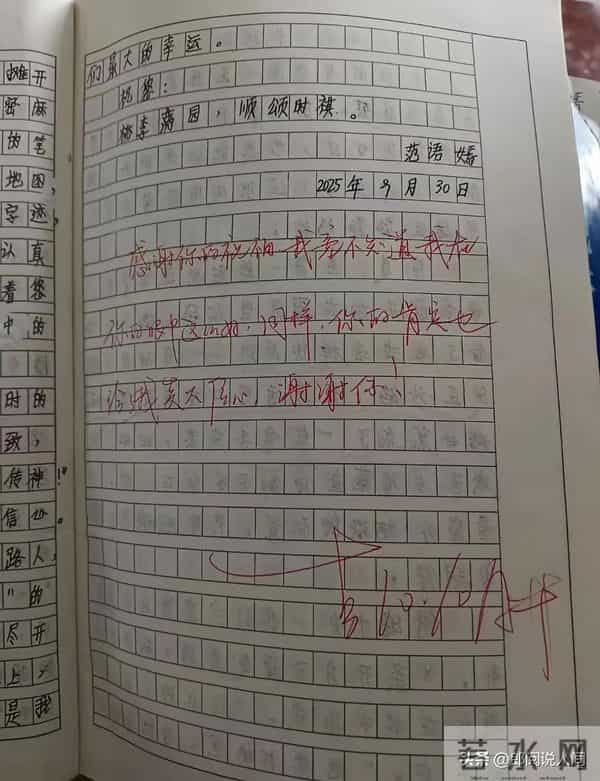 摊开
密麻
的笔
地图,
字迹
认真
着您
中"的
时的
致,
传神!"
信心。
路人
"的
尽开
上
是我
们最大的幸运。
祝您:
桃李满园,顺颂时祺。
范语嫣
2025年9月30日
感谢你的祝福,我竟不知道我在
你的眼中这么好,同样,你的肯定也
给我莫大信心,谢谢你!
头条
水网